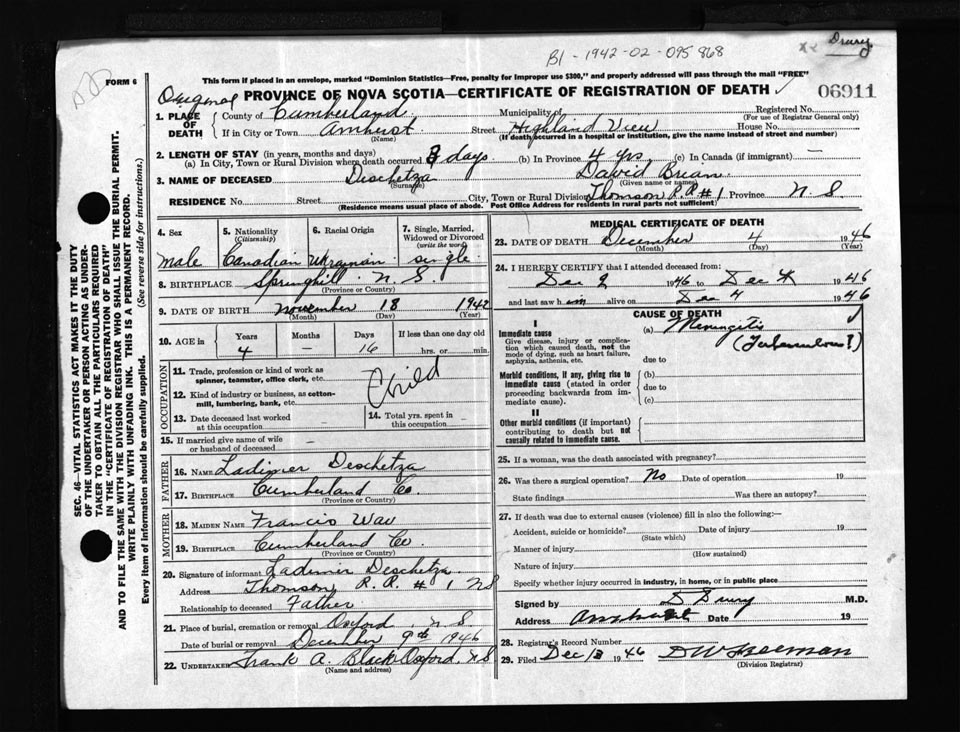 B1 - 1942-02-095868
Drury
FORM 6
This form if placed in an envelope, marked "Dominion Statistics—Free, penalty for improper use $300," and properly addressed will pass through the mail "FREE"
Original PROVINCE OF NOVA SCOTIA—CERTIFICATE OF REGISTRATION OF DEATH 06911
1. PLACE OF DEATH County of Cumberland Municipality of Registered No. (For use of Registrar General only)
If in City or Town Amherst (Name) Street Highland View House No.
(If death occurred in a hospital or institution, give the name instead of street and number)
2. LENGTH OF STAY (in years, months and days)
(a) In City, Town or Rural Division where death occurred 8 days (b) In Province 4 yrs. (c) In Canada (if immigrant) —
3. NAME OF DECEASED Deschetza (Surname) David Brian (Given name or names)
RESIDENCE No. Street City, Town or Rural Division Thomson R.R # 1 Province N. S.
(Residence means usual place of abode. Post Office Address for residents in rural parts not sufficient)
4. Sex male
5. Nationality (Citizenship) Canadian
6. Racial Origin Ukranian
7. Single, Married, Widowed or Divorced (write the word) single
8. BIRTHPLACE Springhill N. S. (Province or Country)
9. DATE OF BIRTH November (Month) 18 (Day) 1942 (Year)
10. AGE in Years 4 Months — Days 16 If less than one day old hrs. or min.
OCCUPATION
11. Trade, profession or kind of work as spinner, teamster, office clerk, etc.
12. Kind of industry or business, as cotton-mill, lumbering, bank, etc.
Child
13. Date deceased last worked at this occupation –
14. Total yrs. spent in this occupation –
15. If married give name of wife or husband of deceased –
FATHER
16. NAME Ladimer Deschetza
17. BIRTHPLACE Cumberland Co. (Province or Country)
MOTHER
18. MAIDEN NAME Francis
19. BIRTHPLACE Cumberland Co (Province or Country)
20. Signature of informant Ladimir Deschetza
Address Thomson R. R. # 1 NS
Relationship to deceased Father
21. Place of burial, cremation or removal Oxford N S
Date of burial or removal December 9th 1946
22. UNDERTAKER Frank A. Black Oxford, N S (Name and address)
MEDICAL CERTIFICATE OF DEATH
23. DATE OF DEATH December (Month) 4 (Day) 1946 (Year)
24. I HEREBY CERTIFY that I attended deceased from:
Dec 1946 to Dec 4 1946
and last saw him alive on Dec 4 1946
CAUSE OF DEATH
I
Immediate cause
Give disease, injury or complication which caused death, not the mode of dying, such as heart failure, asphyxia, asthenia, etc.
(a) Meningitis
(Tuberculous?)
due to
Morbid conditions, if any, giving rise to immediate cause (stated in order proceeding backwards from immediate cause).
(b)
due to
(c)
II
Other morbid conditions (if important) contributing to death but not causally related to immediate cause.
25. If a woman, was the death associated with pregnancy?
26. Was there a surgical operation? No Date of operation 19
State findings Was there an autopsy?
27. If death was due to external causes (violence) fill in also the following:—
Accident, suicide or homicide? (State which) Date of injury 19
Manner of injury (How sustained)
Nature of injury
Specify whether injury occurred in industry, in home, or in public place
Signed by D Drury M.D.
Address Amherst Date 19
28. Registrar's Record Number
29. Filed Dec 13 1946 D W Freeman (Division Registrar)
SEC. 46—VITAL STATISTICS ACT MAKES IT THE DUTY
OF THE UNDERTAKER OR PERSON ACTING AS UNDERTAKER TO OBTAIN ALL THE PARTICULARS REQUIRED
IN THE "CERTIFICATE OF REGISTRATION OF DEATH"
AND TO FILE THE SAME WITH THE DIVISION REGISTRAR WHO SHALL ISSUE THE BURIAL PERMIT.
WRITE PLAINLY WITH UNFADING INK. THIS IS A PERMANENT RECORD.
Every item of information should be carefully supplied. (See reverse side for instructions.)